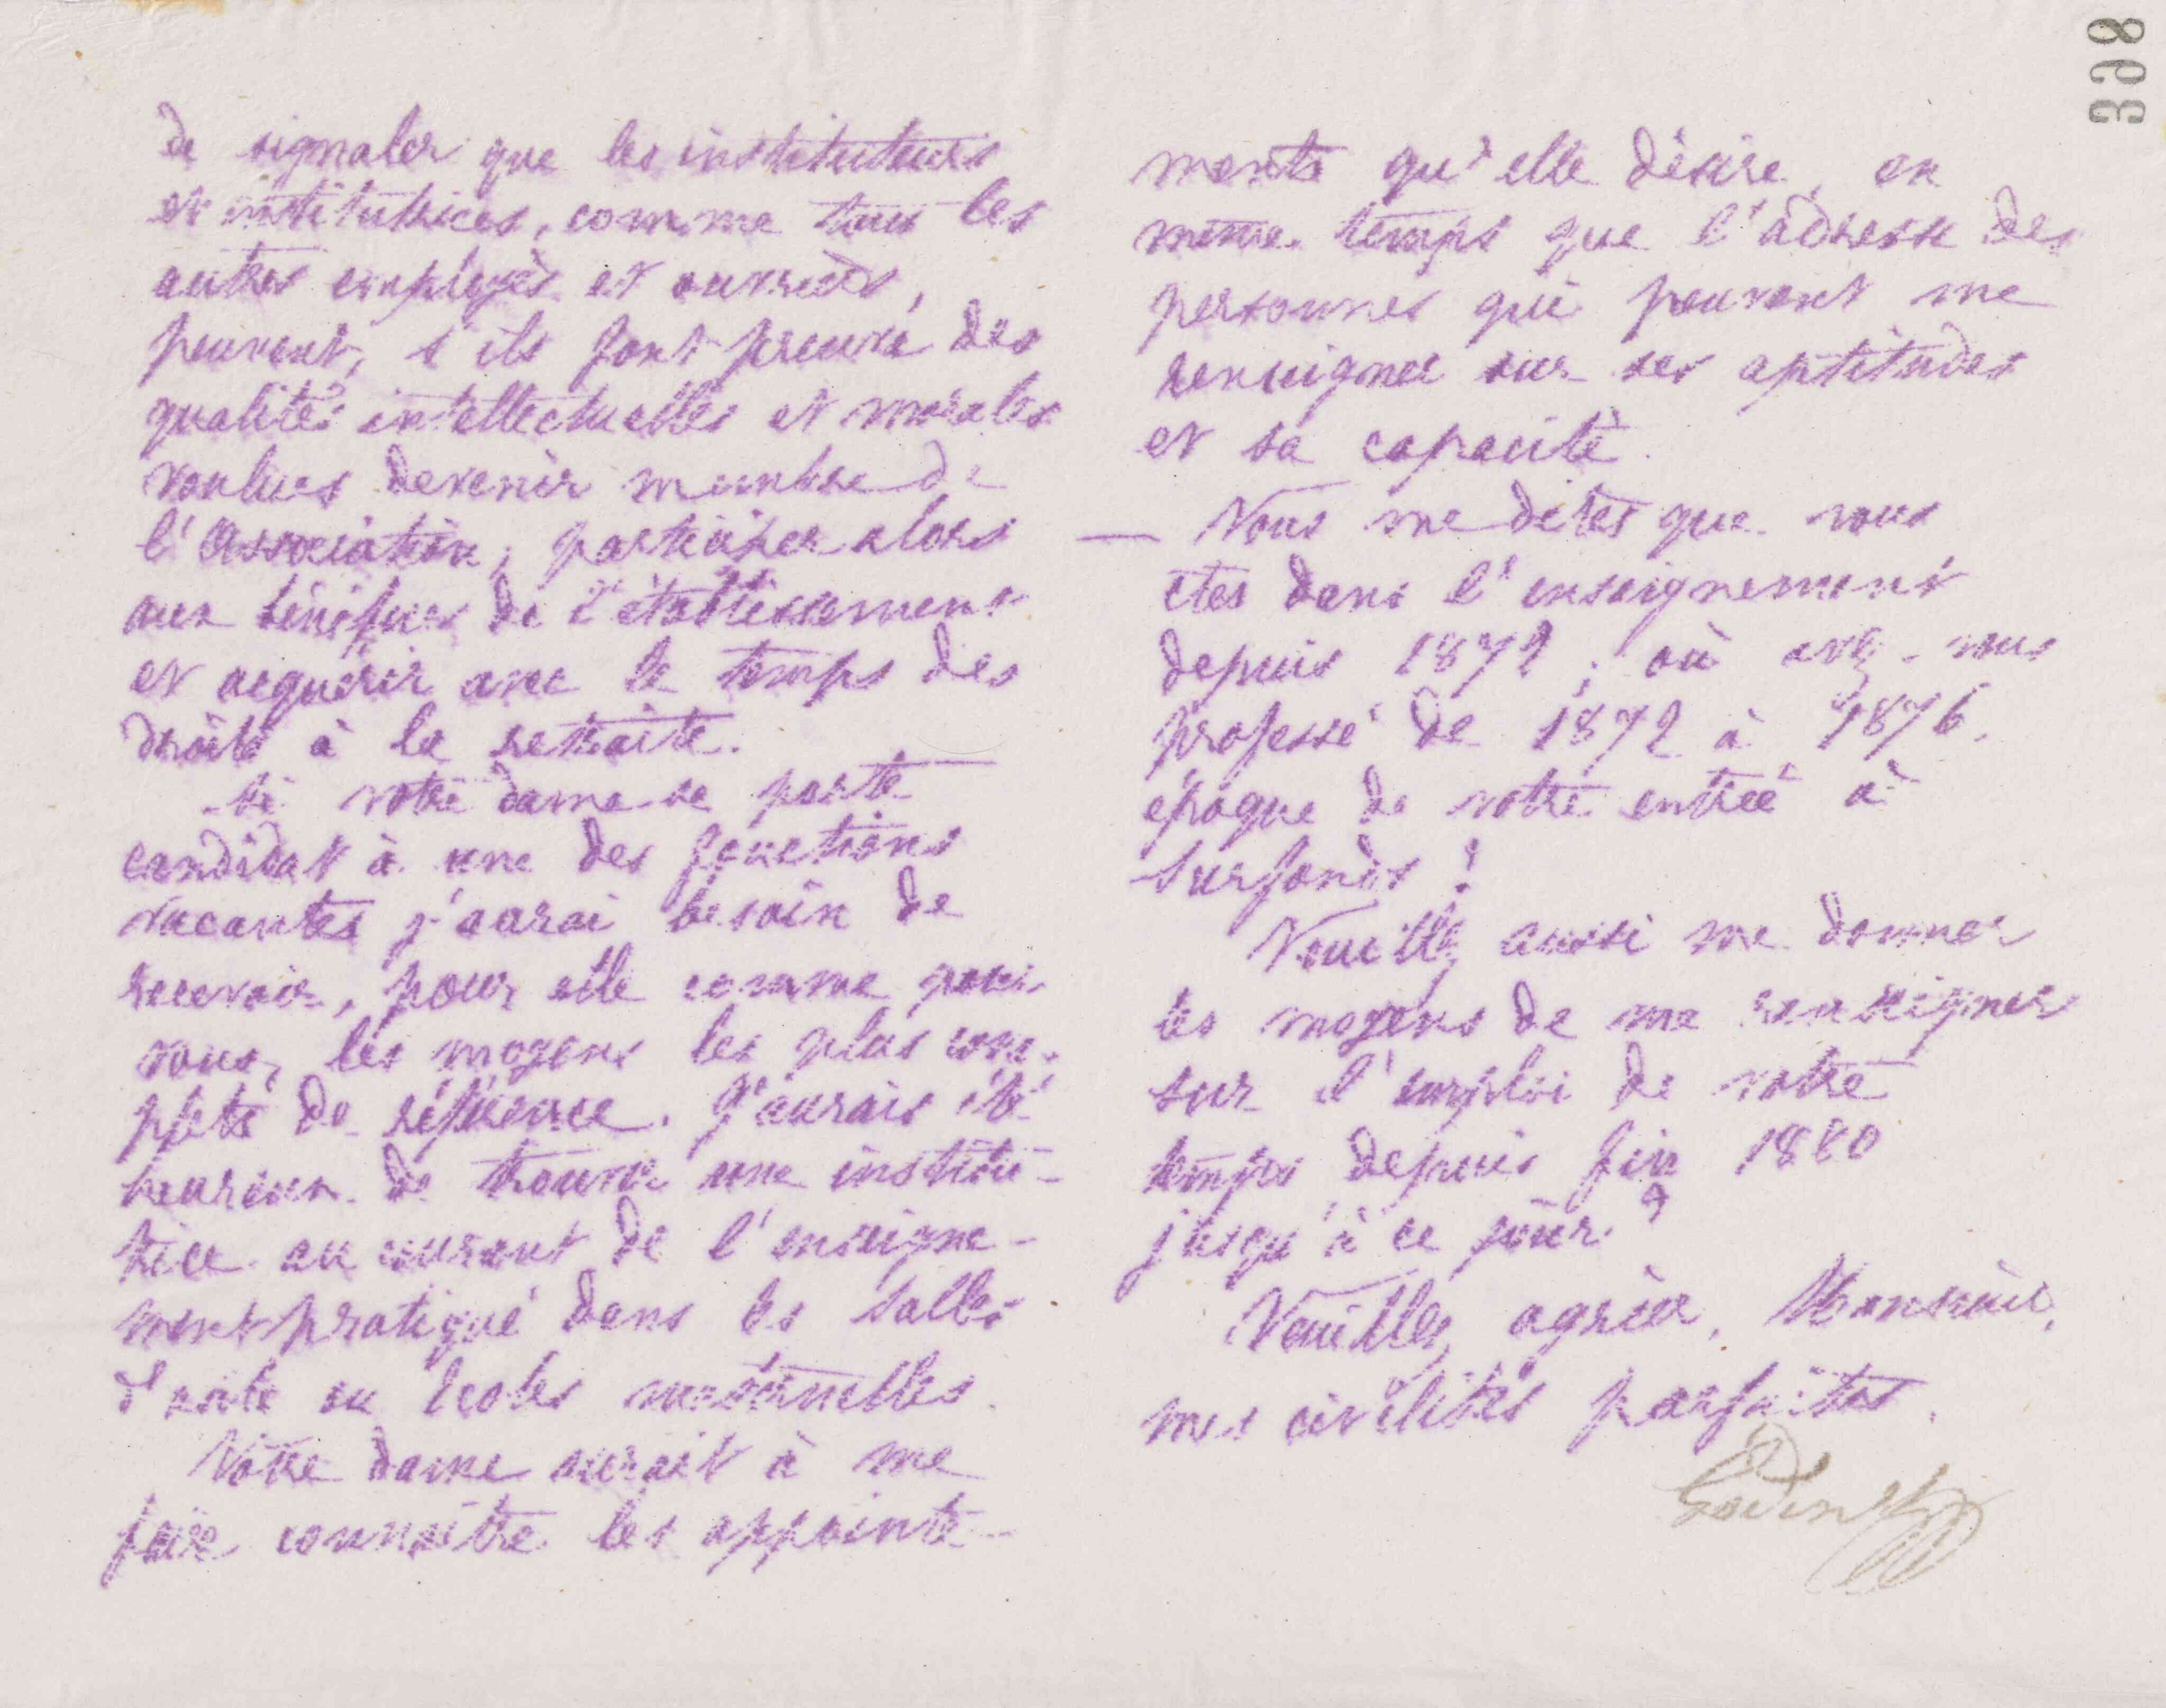 398
de signaler que les instituteurs
et institutrices, comme tous les
autres employés et ouvriers,
peuvent, s'ils font preuve des
qualités intellectuelles et morales
voulues devenir membre de
l'association, participer alors
aux bénéfices de l'établissement
et acquérir avec le temps des
droits à la retraite.
Si votre dame se porte
candidat à une des fonctions
vacantes j'aurai besoin de
recevoir, pour elle comme pour
vous, les moyens les plus com-
plets de référence. J'aurais été
heureux de trouver une institu-
trice au courant de l'enseigne-
ment pratiqué dans les Salles
d'asile ou écoles maternelles.
Votre dame aurait à me
faire connaître les appointe-
ments qu'elle désire, en
même temps que l'adresse des
personnes qui peuvent me
renseigner sur ses aptitudes
et sa capacité.
— Vous me dites que vous
êtes dans l'enseignement
depuis 1872 ; où avez-vous
professé de 1872 à 1876,
époque de votre entrée à
Surfonds ?
Veuillez aussi me donner
les moyens de me renseigner
sur l'emploi de votre
temps depuis fin 1880
jusqu'à ce jour ?
Veuillez agréer, Monsieur,
mes civilités parfaites.
Godin